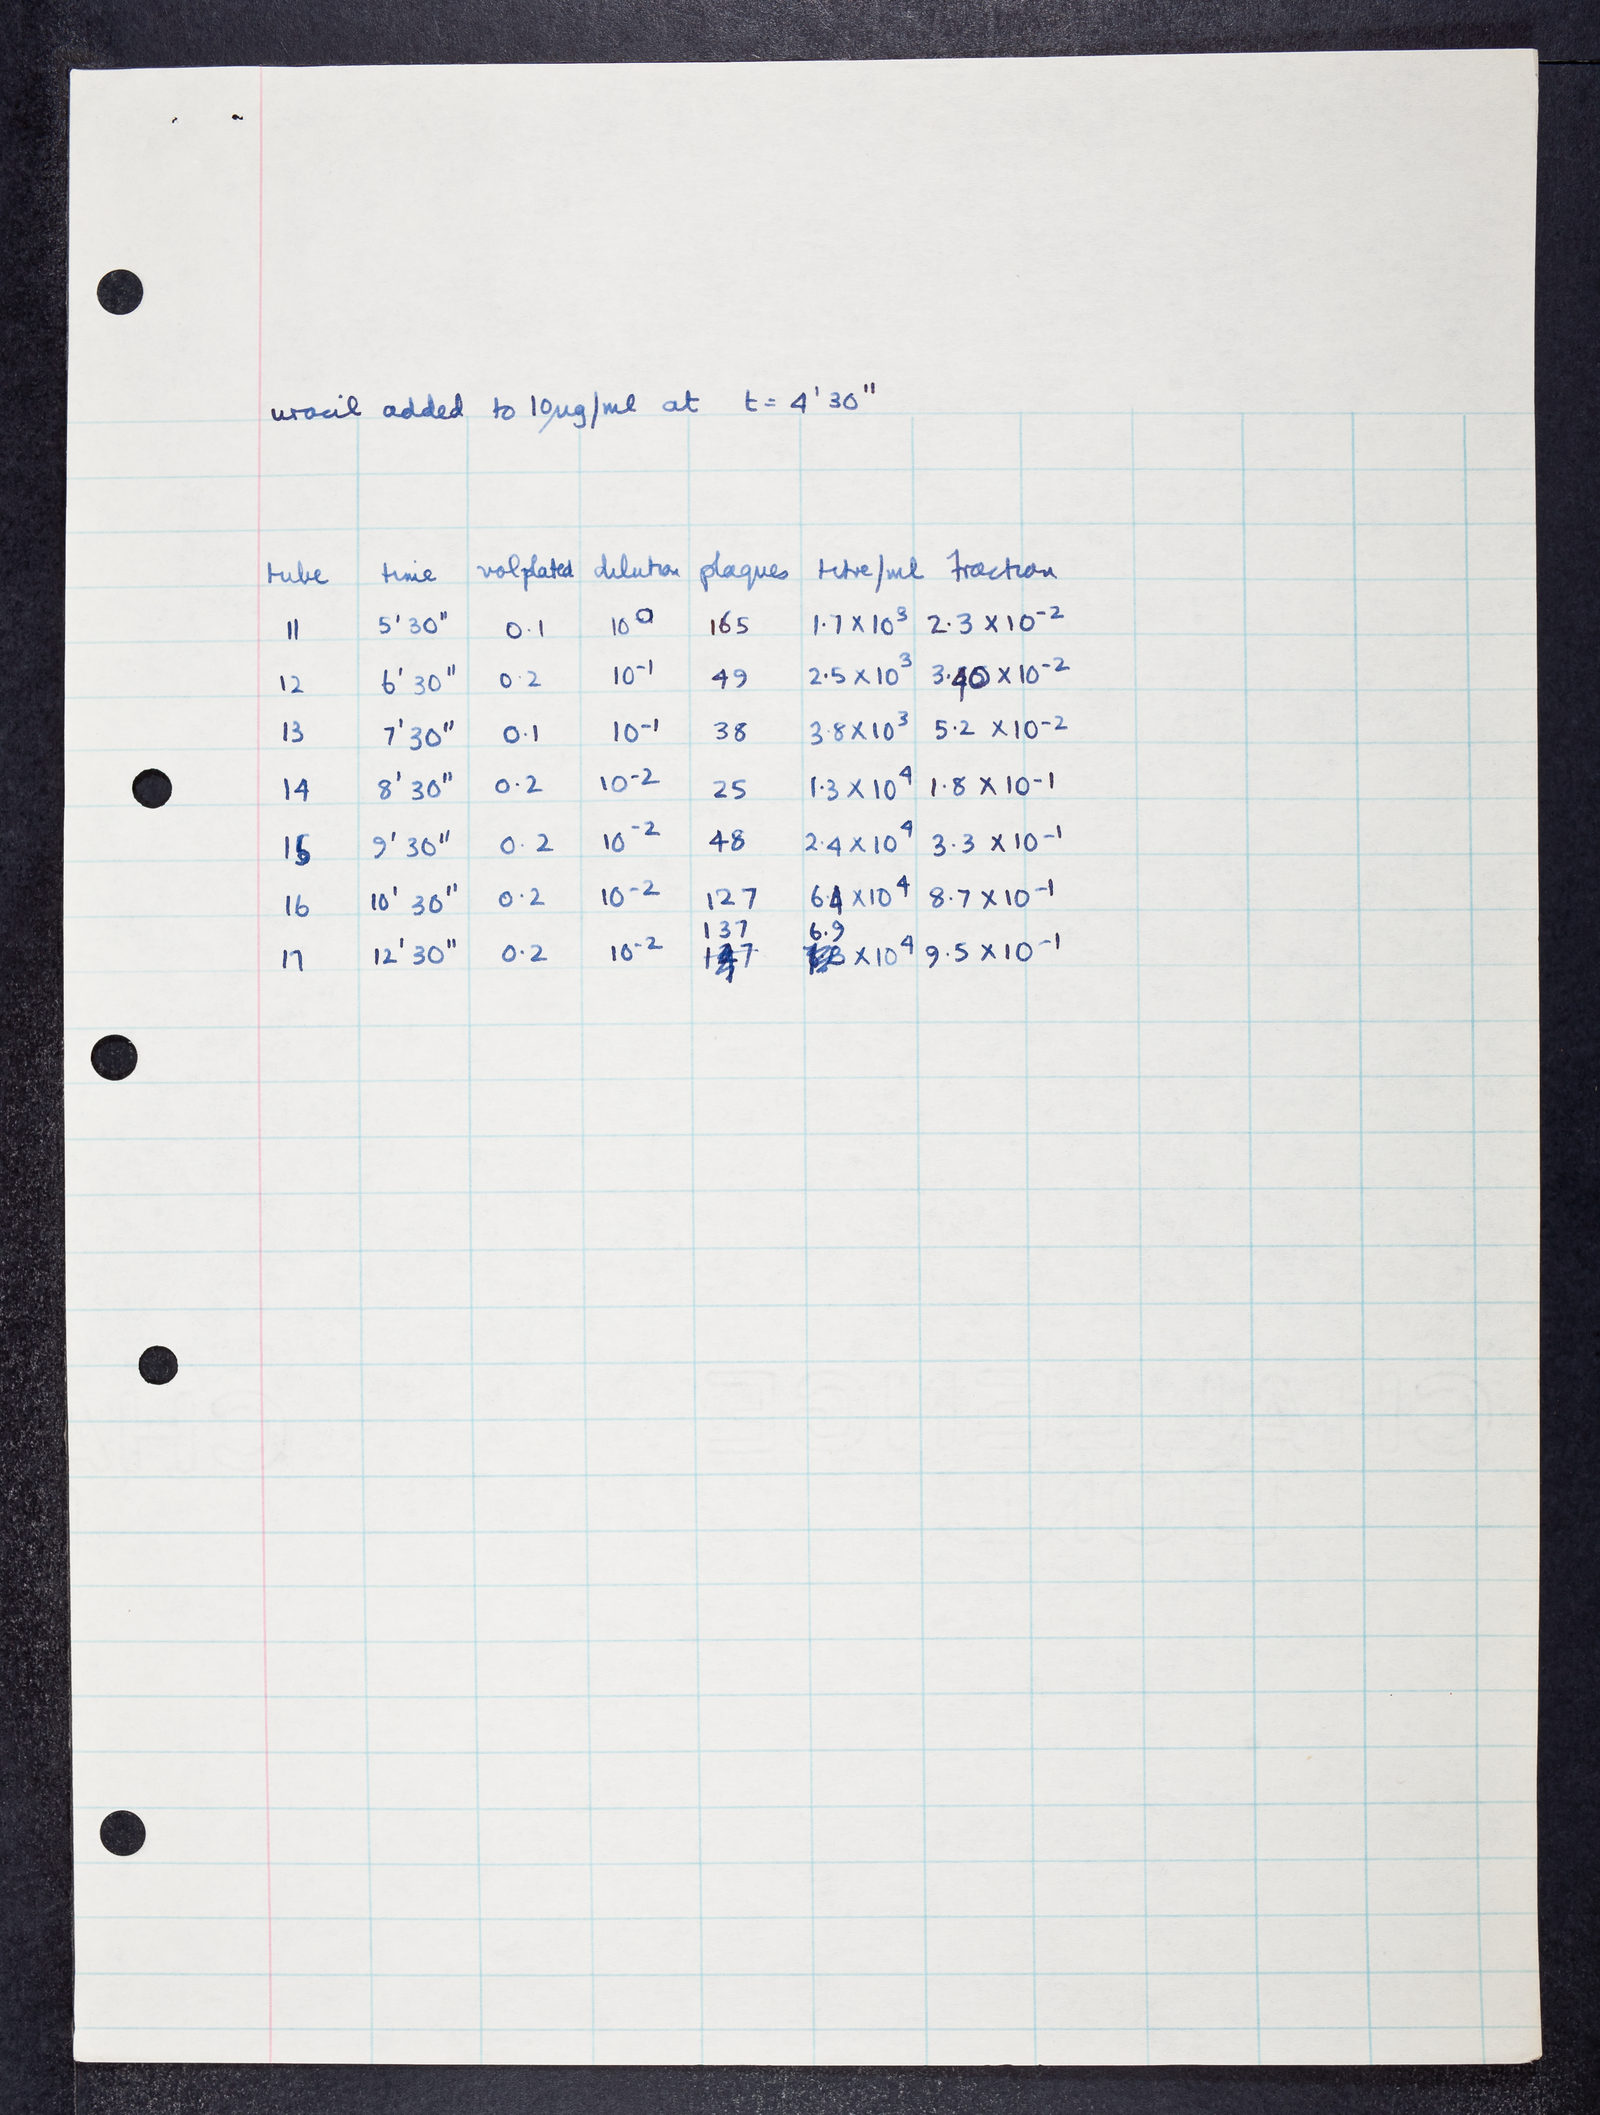 uracil added to 10µg/ml at t = 4'30"
tube time vol plated dilution plaques titre/ml fraction
11 5'30" 0.1 10⁰ 165 1.7 × 10³ 2.3 × 10⁻²
12 6'30" 0.2 10⁻¹ 49 2.5 × 10³ 3.40 × 10⁻²
13 7'30" 0.1 10⁻¹ 38 3.8 × 10³ 5.2 × 10⁻²
14 8'30" 0.2 10⁻² 25 1.3 × 10⁴ 1.8 × 10⁻¹
15 9'30" 0.2 10⁻² 48 2.4 × 10⁴ 3.3 × 10⁻¹
16 10'30" 0.2 10⁻² 127 6.4 × 10⁴ 8.7 × 10⁻¹
137 6.9
17 12'30" 0.2 10⁻² × 10⁴ 9.5 × 10⁻¹